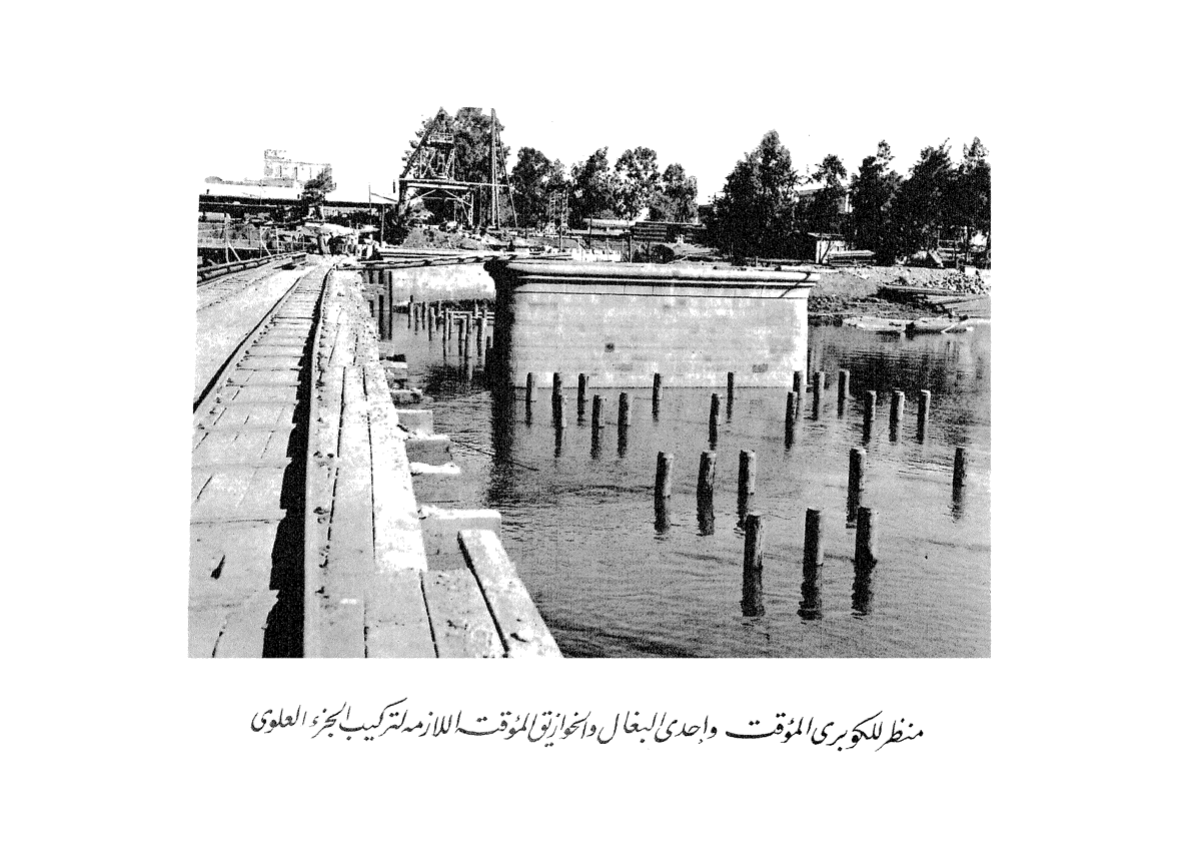 منظر للكوبرى المؤقت وإحدى البغال والخوازيق المؤقتة اللازمه لتركيب الجزء العلوى